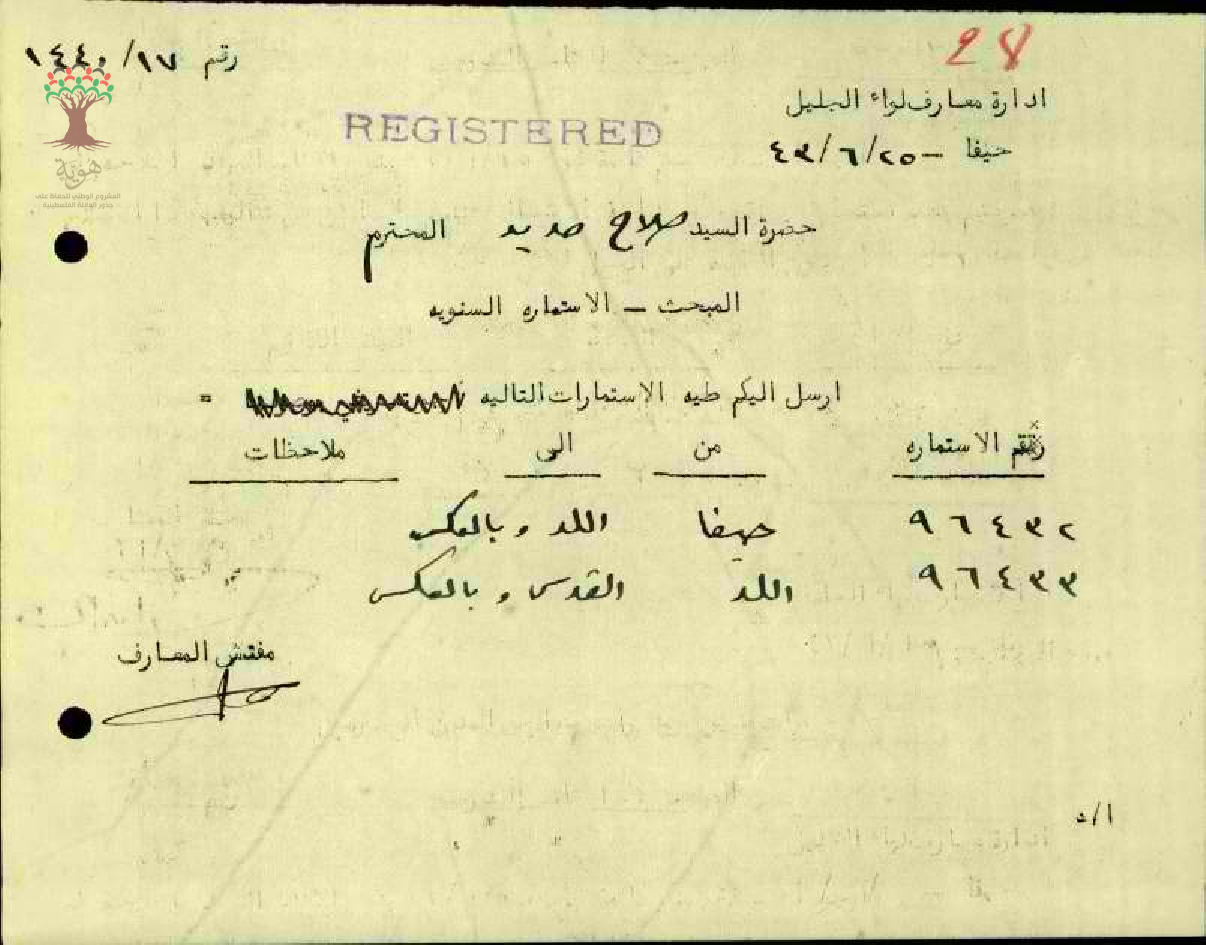 رقم ١٤٤٠/١٧
28
ادارة معارف لواء الجليل
REGISTERED
حيفا - ٤٣/٦/٢٥
هوية
المشروع الوطني للحفاظ على
جذور العائلة الفلسطينية
حضرة السيد صلاح حديد المحترم
المبحث - الاستماره السنويه
ارسل اليكم طيه الاستمارات التاليه =
رقم الاستماره من الى ملاحظات
٩٦٤٣٢ حيفا اللد وبالعكس
٩٦٤٣٣ اللد القدس وبالعكس
مفتش المعارف
ا/د